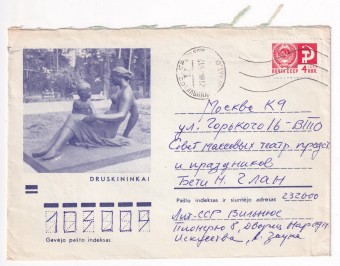 ПОЧТА СССР 4 КОП
Москва К9
ул. Горького 16-ВТО
Совет массовых театр. предст
и праздников
Бети Н. Глан
DRUSKININKAI
Pašto indeksas ir siuntėjo adresas 232000
Лит.ССР Вильнюс
Пионерю 8, Дворец
Искусства,
103009
Gavėjo pašto indeksas